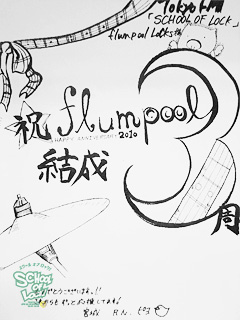 Tokyo FM
「SCHOOL OF LOCK!」
flumpool Locks!様
祝 flumpool
HAPPY ANNIVERSARY
2010
結成 3周
SCHOOL OF LOCK!
おめでとうございます。!!
これからもずっと応援してます♪
宮城 R.N. ピヨ